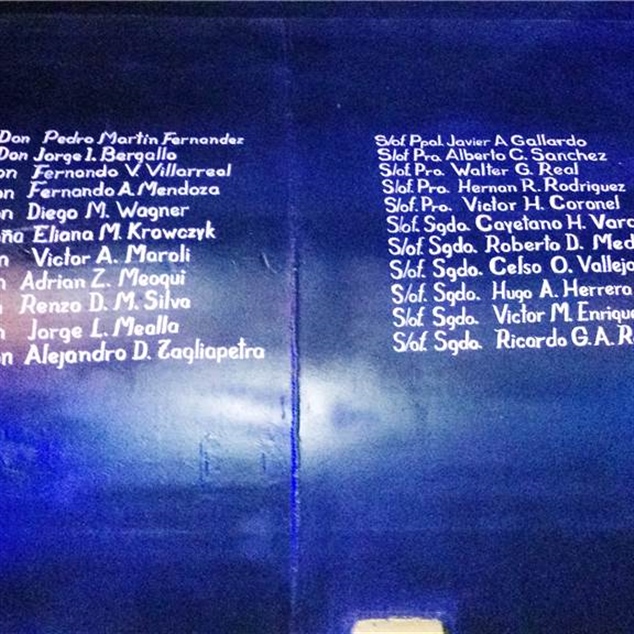 Don Pedro Martin Fernandez
Don Jorge I. Bergallo
Fernando V. Villarreal
Fernando A. Mendoza
Diego M. Wagner
Eliana M. Krawczyk
Victor A. Maroli
Adrian Z. Meoqui
Renzo D. M. Silva
Jorge L. Mealla
Alejandro D. Tagliapetra
S/of. Ppal. Javier A Gallardo
S/of Pro. Alberto C. Sanchez
S/of. Pro. Walter G. Real
S/of. Pro. Hernan R. Rodriguez
S/of. Pro. Victor H. Coronel
S/of. Sgdo. Cayetano H.
S/of. Sgdo. Roberto D.
S/of. Sgdo. Celso O. Vallejo
S/of. Sgdo. Hugo A. Herrera
S/of. Sgdo. Victor M. Enrique
S/of. Sgdo. Ricardo G.A.